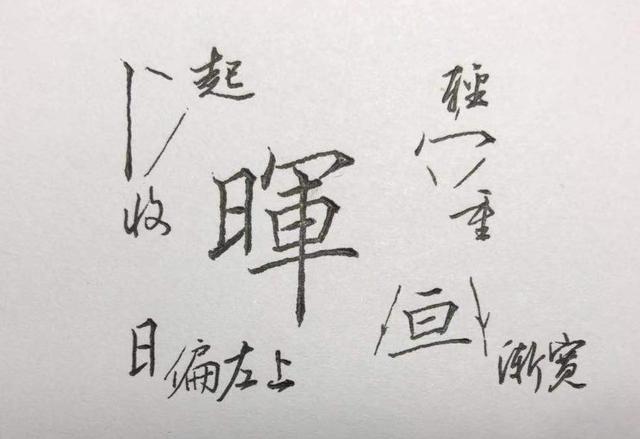 起
輕
收
暉
重
亘
渐宽
日偏左上